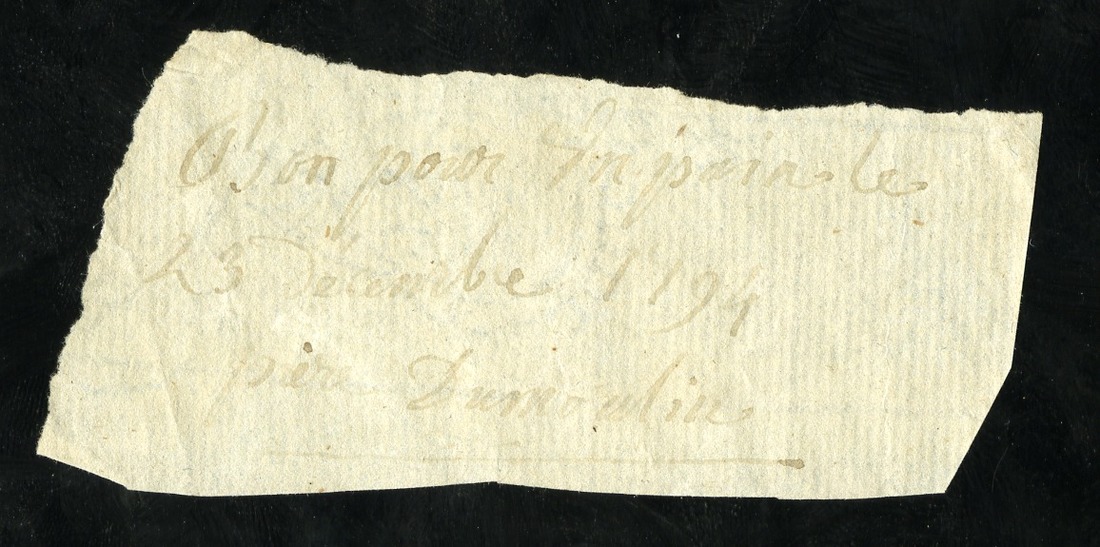 Bon pour un pain le
23 decembre 1794
piere Dumoulin